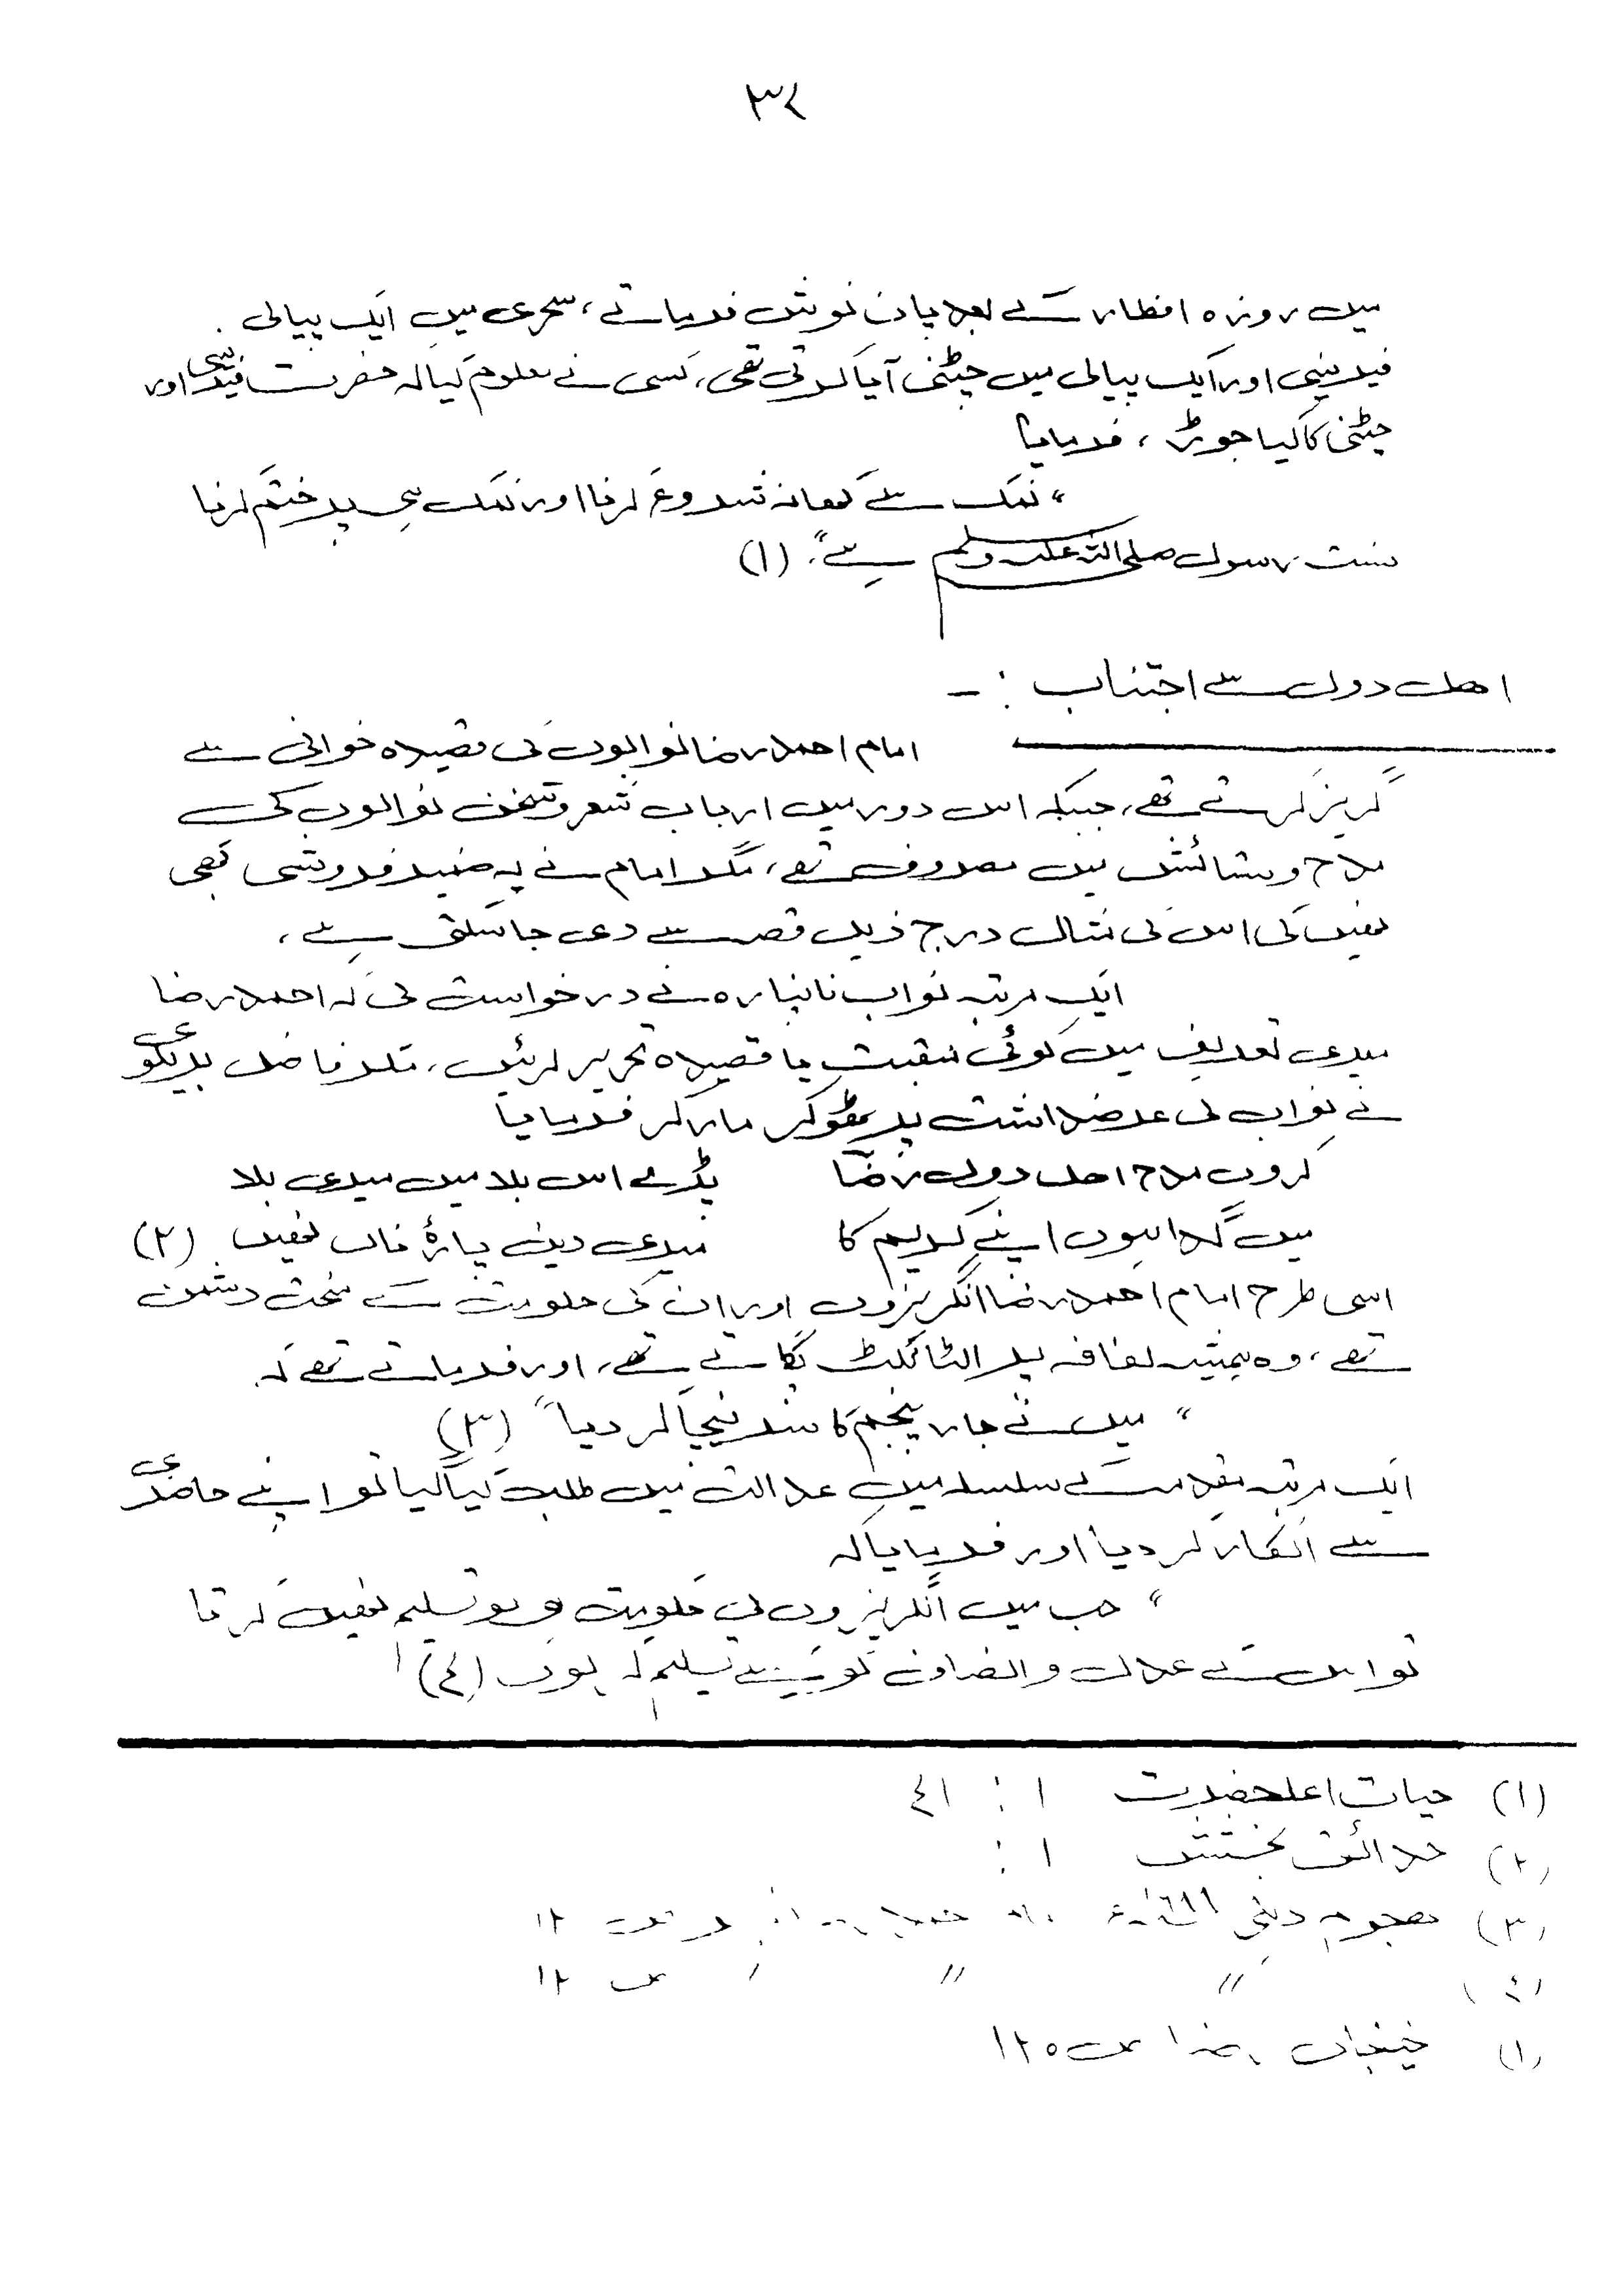 ۳۴
میں روزہ افطار کے بعد پان نوش فرماتے، سحری میں ایک پیالی
فیرینی اور ایک پیالی میں چٹنی آیا کرتی تھی، کسی نے معلوم کیا کہ حضرت فیرینی اور
چٹنی کا کیا جوڑ، فرمایا
"نمک سے کھانہ شروع کرنا اور نمک ہی پر ختم کرنا
سنت رسول صلی اللہ علیہ وسلم ہے"۔ (۱)
اھل دول سے اجتناب :-
امام احمد رضا نوابوں کی قصیدہ خوانی سے
گریز کرتے تھے، جبکہ اس دور میں ارباب شعر و سخن نوابوں کی
مدح و ستائش میں مصروف تھے، مگر امام نے یہ ضمیر فروشی کبھی
نھیں کی اس کی مثال درج ذیل قصہ سے دی جا سکتی ہے،
ایک مرتبہ نواب نانپارہ نے درخواست کی کہ احمد رضا
میری تعریف میں کوئی منقبت یا قصیدہ تحریر کریں، مگر فاضل بریلوی
نے نواب کی عرضداشت پر ٹھوکر مار کر فرمایا
کروں مدح اھل دول رضا پڑے اس بلا میں میری بلا
میں گدا ہوں اپنے کریم کا میری دین پارۂ ناں نھیں (۲)
اسی طرح امام احمد رضا انگریزوں اور ان کی حکومت کے سخت دشمن
تھے، وہ ہمیشہ لفافہ پر الٹا ٹکٹ لگاتے تھے، اور فرماتے تھے کہ
"میں نے جارج پنجم کا سر نیچا کر دیا" (۳)
ایک مرتبہ مقدمہ کے سلسلہ میں عدالت میں طلب کیا گیا تو اپنے حاضری
سے انکار کر دیا اور فرمایا کہ
"جب میں انگریزوں کی حکومت ہی کو تسلیم نھیں کرتا
تو اس کے عدل و انصاف کو کیسے تسلیم کہ لوں (٤)
(۱) حیات اعلحضرت ۱ : ٤۱
(۲) حدائق بخشش ۱ :
(۳) ھجوم دہلی ۱۲
(٤) // // ص ۱۲
(۱) خیابان رضا ص ۱۲۵